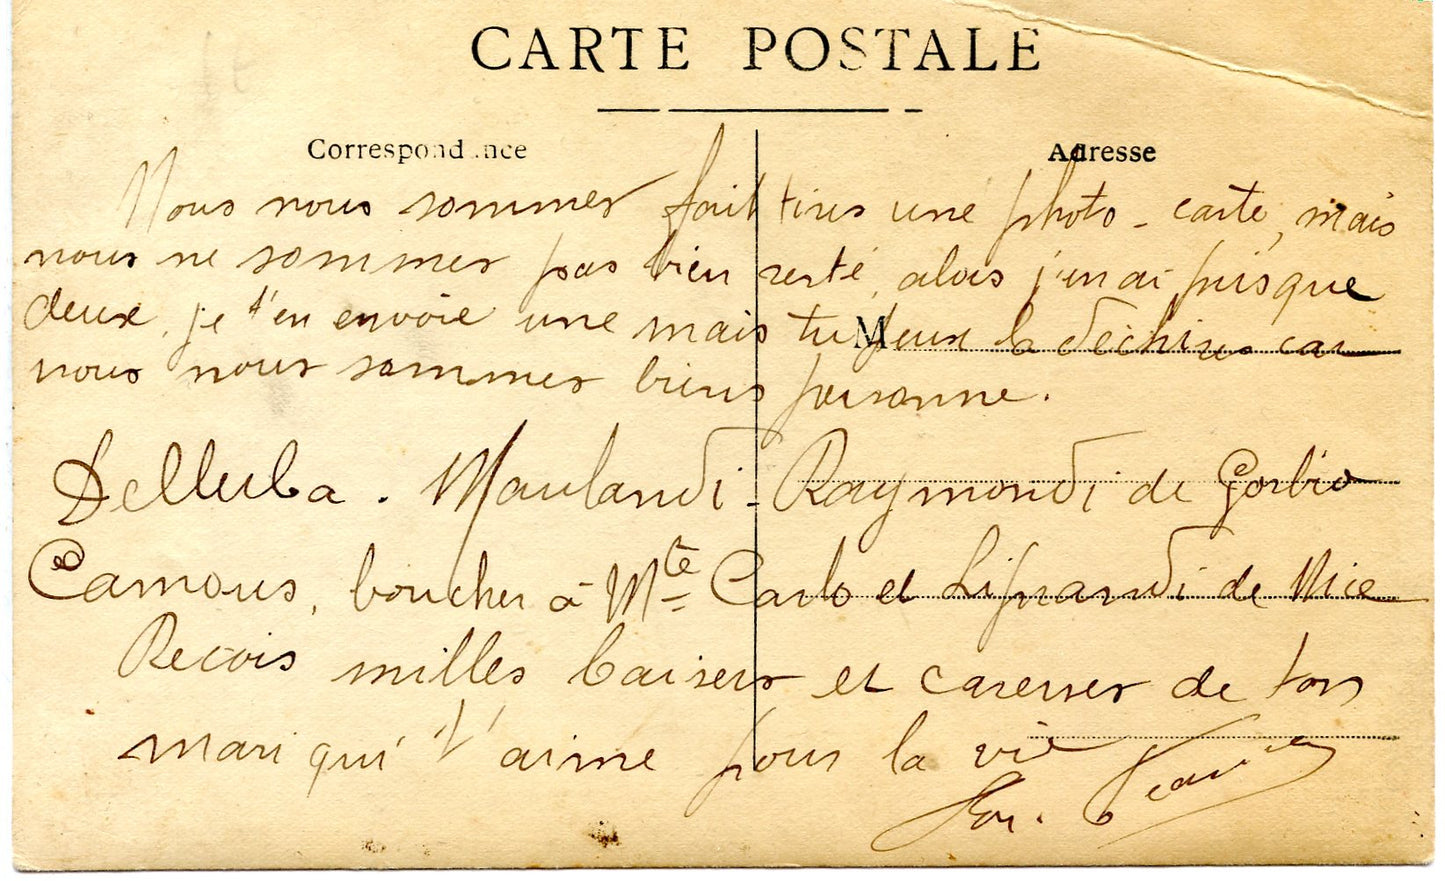 CARTE POSTALE
Correspondance
Adresse
Nous nous sommes fait tires une photo-carte, mais
nous ne sommes pas bien resté, alois j'en ai puisque
deux, je t'en envoie une mais tu peux la déchirer car
nous nous sommes biens personne.
M
Delluba. Maulandi - Raymondi de Gorbio
Camous, boucher à Mte Carlo et de Nice
Recois milles baisers et caresses de ton
mari qui t'aime pour la vie